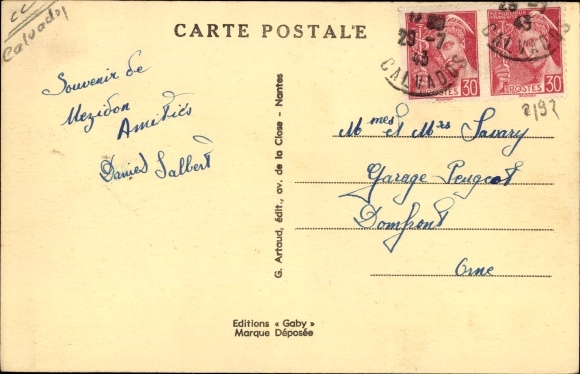 CC
Calvados
CARTE POSTALE
29-7
43
CALVADOS
29-7
43
CALVADOS
POSTES 30
POSTES 30
2/92
Souvenir de
Mezidon
Amitiés
Daniel Salbert
Mmes et Mrs Savary
Garage Peugeot
Domfront
Orne
G. Artaud, édit., av. de la Close - Nantes
Editions « Gaby »
Marque Déposée